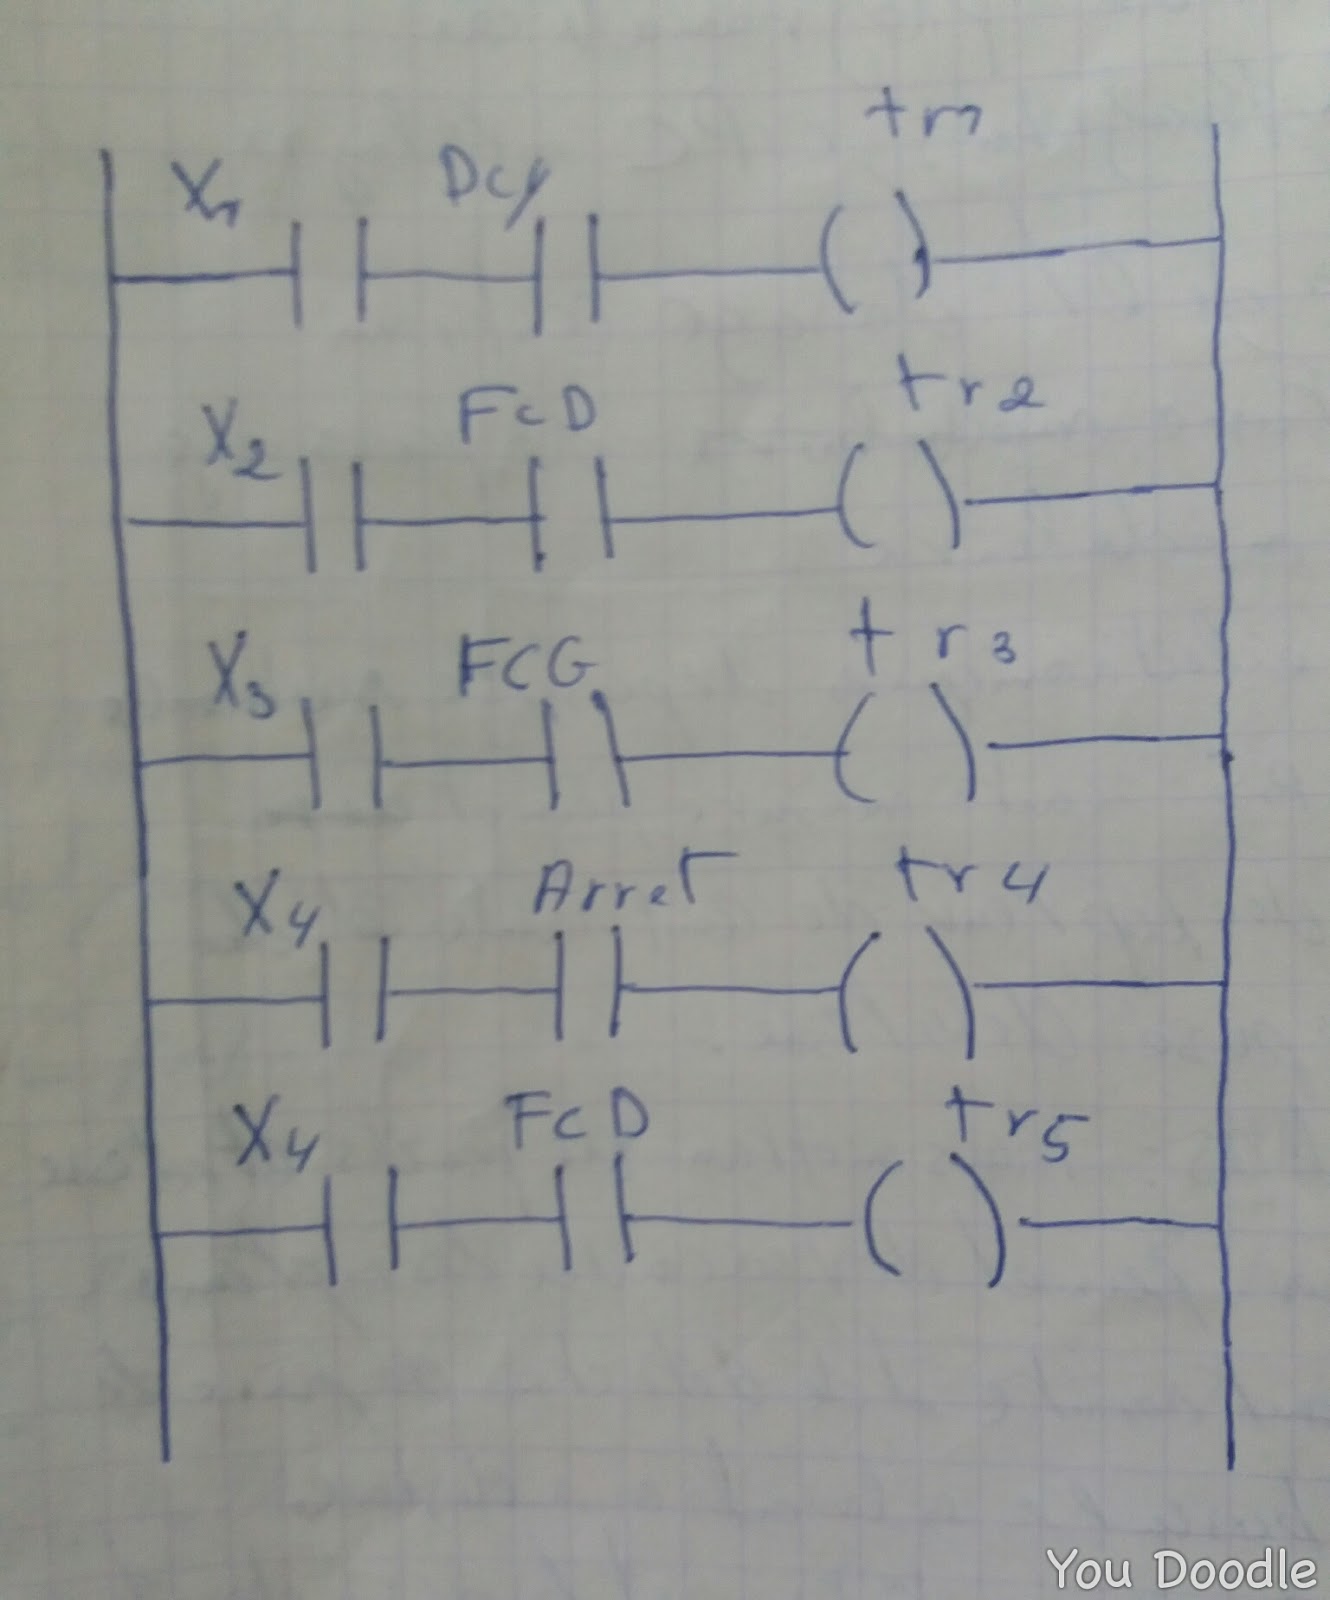 X1 Dcy tr1
X2 FcD tr2
X3 FCG tr3
X4 Arret tr4
X4 FcD tr5
You Doodle